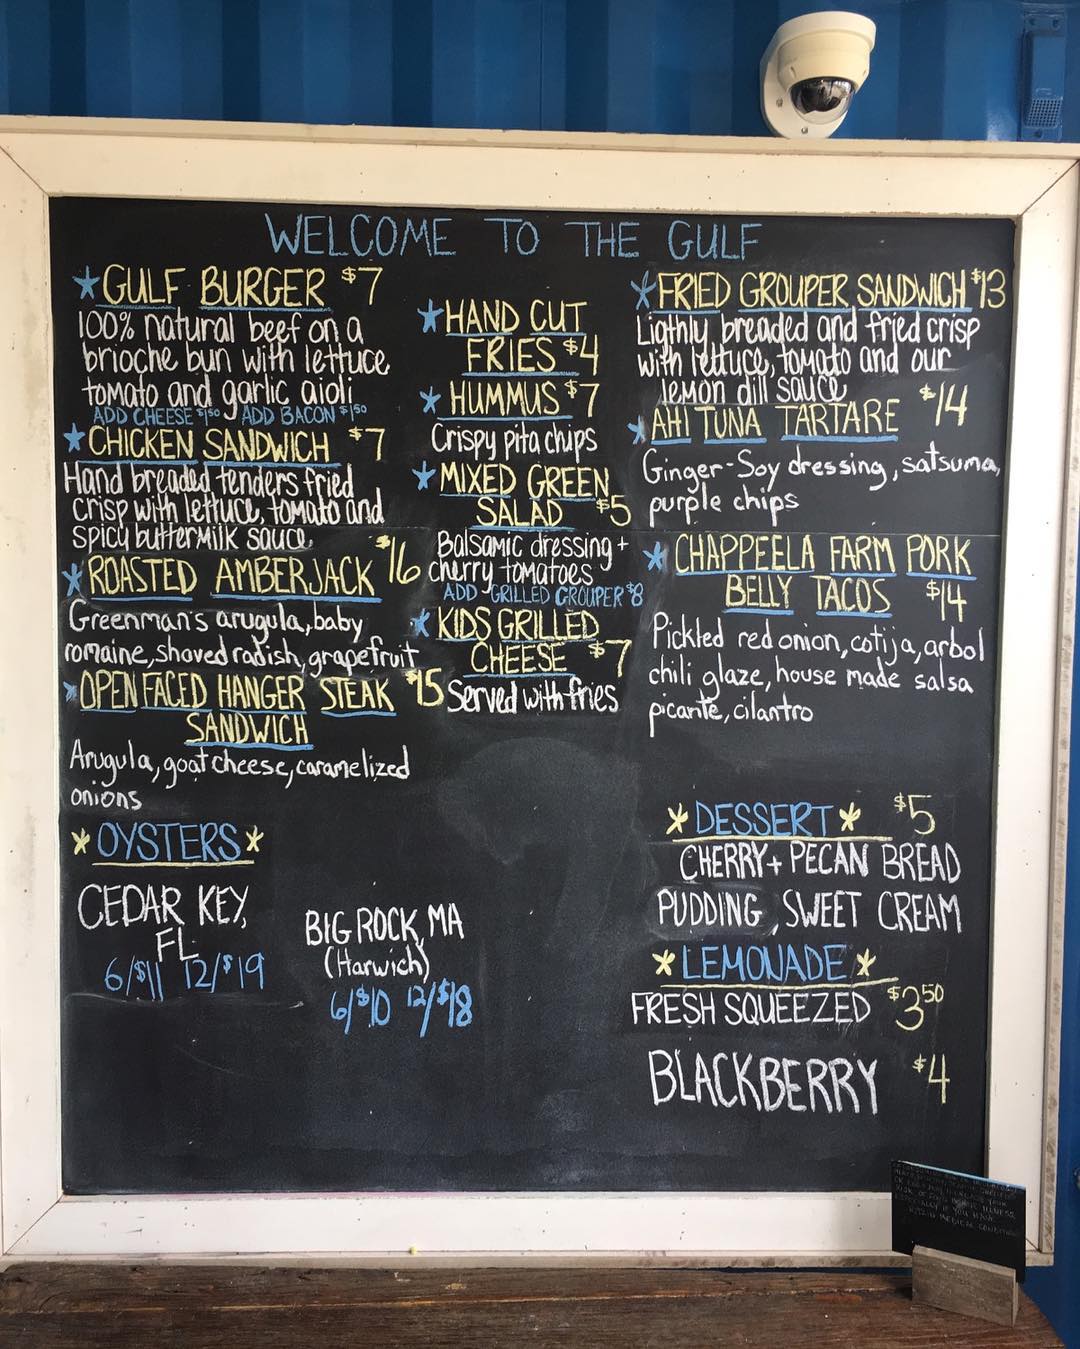 WELCOME TO THE GULF
GULF BURGER $7
100% natural beef on a
brioche bun with lettuce
tomato and garlic aioli
ADD CHEESE $1.50 ADD BACON $1.50
CHICKEN SANDWICH $7
Hand breaded tenders fried
crisp with lettuce, tomato and
spicy buttermilk sauce
ROASTED AMBERJACK $16
Greenman's arugula, baby
romaine, shaved radish, grapefruit
OPEN FACED HANGER STEAK $15
SANDWICH
Arugula, goat cheese, caramelized
onions
OYSTERS
CEDAR KEY,
FL
6/$11 12/$19
BIG ROCK, MA
(Harwich)
6/$10 12/$18
HAND CUT
FRIES $4
HUMMUS $7
Crispy pita chips
MIXED GREEN
SALAD $5
Balsamic dressing +
cherry tomatoes
ADD GRILLED GROUPER $8
KIDS GRILLED
CHEESE $7
Served with fries
FRIED GROUPER SANDWICH $13
Ligthly breaded and fried crisp
with lettuce, tomato and our
lemon dill sauce
AHI TUNA TARTARE $14
Ginger-Soy dressing, satsuma,
purple chips
CHAPPEELA FARM PORK
BELLY TACOS $14
Pickled red onion, cotija, arbol
chili glaze, house made salsa
picante, cilantro
DESSERT $5
CHERRY + PECAN BREAD
PUDDING, SWEET CREAM
LEMONADE
FRESH SQUEEZED $3.50
BLACKBERRY $4